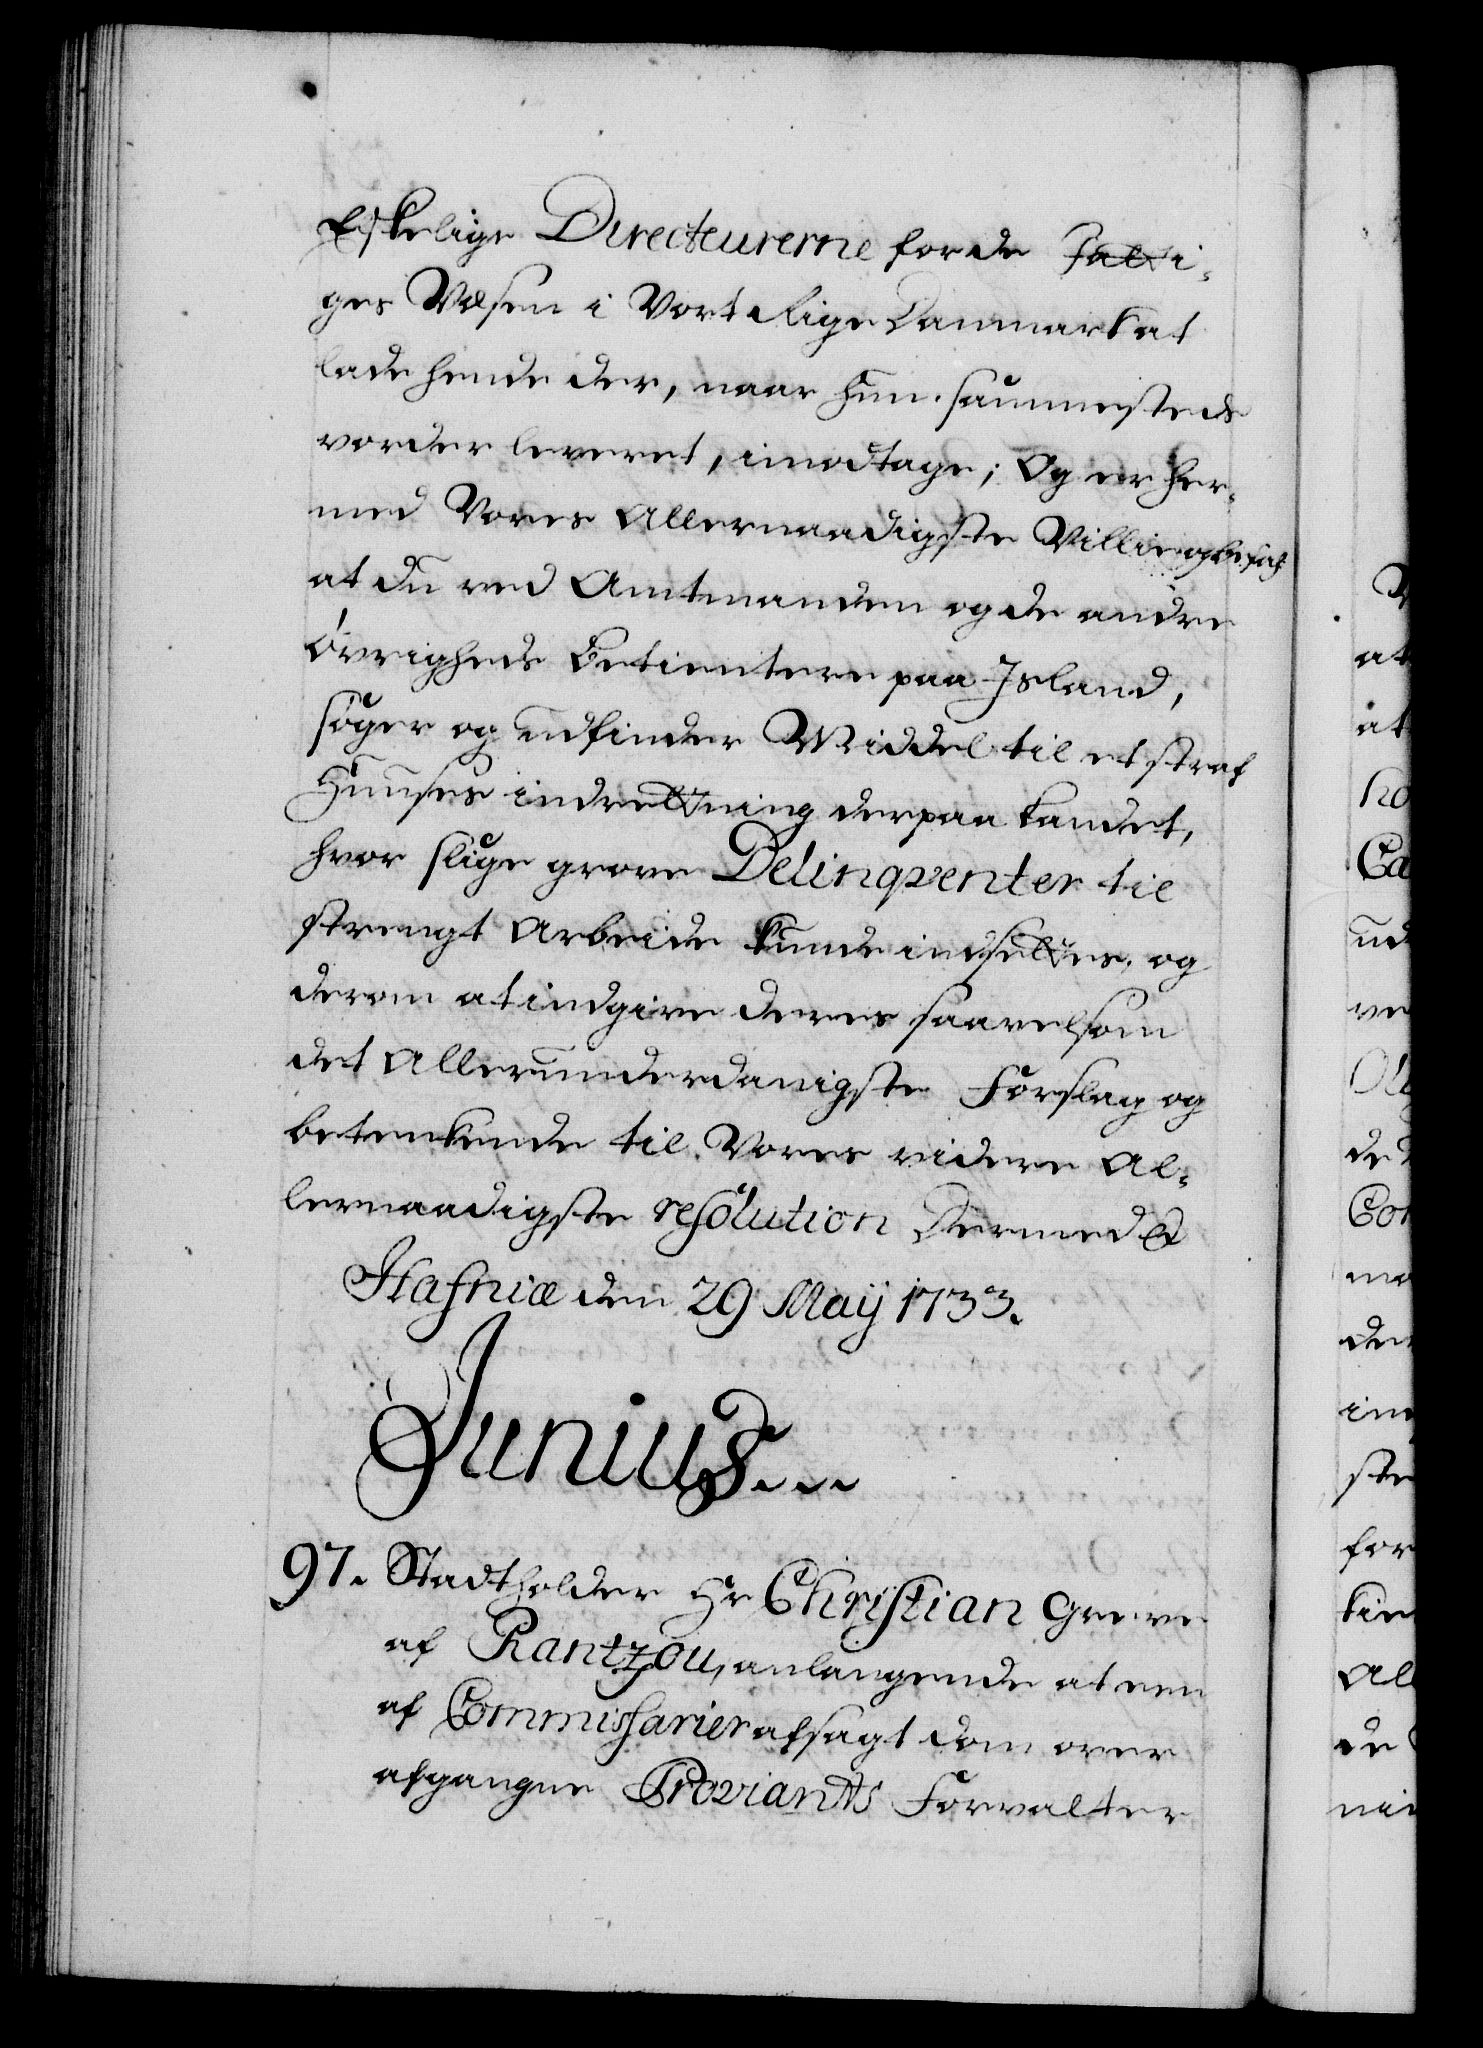 Elskelige Directeurerne for de Fatti-
ges Væsen i Vort Rige Danmark at
lade hende der, naar hun sammesteds
vorder leveret, imodtage; Og er her-
med Vores Allernaadigste Villie og befal
at du ved Amtmanden og de andre
Øvrigheds Betientere paa Island,
søger og udfinder Middel til et straf
Huuses indrettning der paa Landet,
hvor slige grove Delinqventer til
strengt Arbeide kunde indsettes, og
derom at indgive deres saavelsom
det Allerunderdanigste Forslag og
betenkende til Vores videre Al-
lernaadigste resolution Dermed &
Hafniæ den 29 Maij 1733.
Junius...
97. Stadtholder Hr Christian Greve
af Rantzou, anlangende at een
af Commissarier afsagt dom over
afgangne Proviants Forvalter